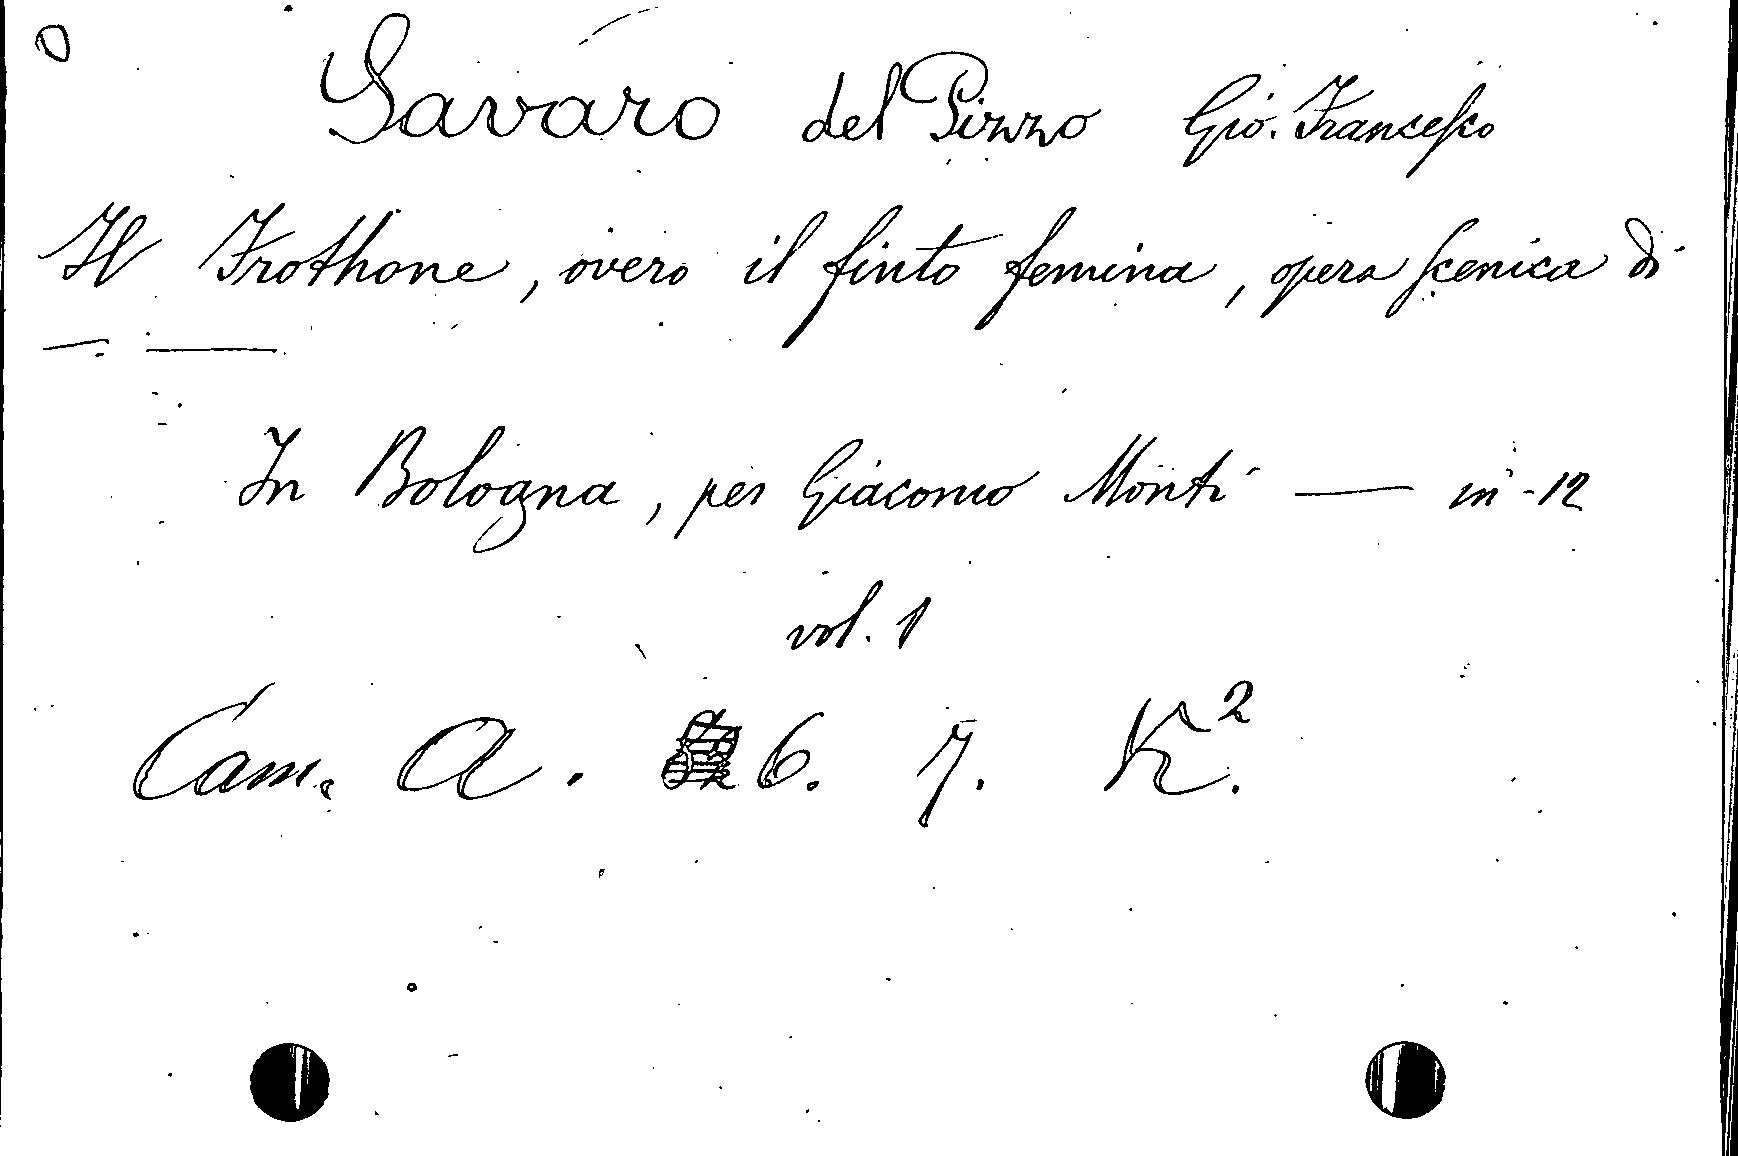 Savaro del Pizzo Gio. Francesco
Il Frothone, overo il finto femina, opera scenica di
— —
In Bologna, per Giacomo Monti — in-12
vol. 1
Cam. A. 6. 7. K².